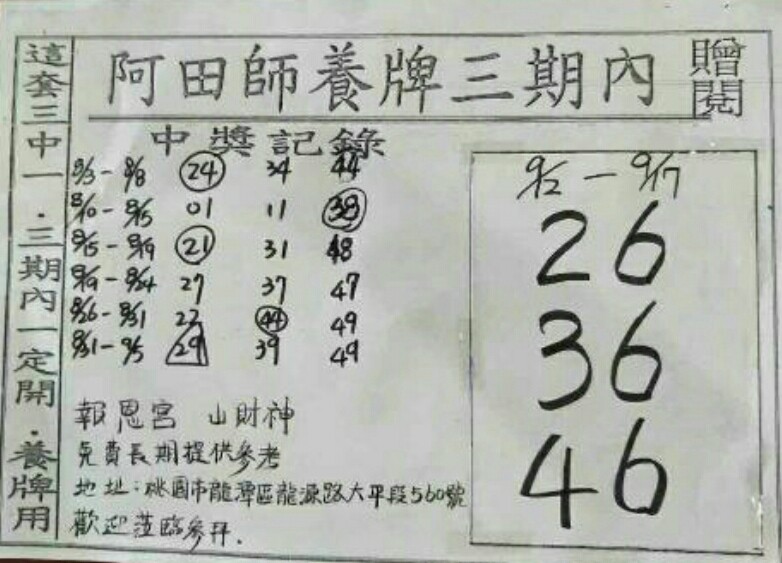 阿田師養牌三期內
贈閱
這套三中一．三期內一定開．養牌用
中獎記錄
8/3 - 8/8 24 34 44
8/10 - 8/15 01 11 38
8/15 - 8/19 21 31 48
8/19 - 8/24 27 37 47
8/26 - 8/31 22 44 49
8/31 - 9/5 29 39 49
報恩宮 山財神
免費長期提供參考
地址：桃園市龍潭區龍源路大平段560號
歡迎蒞臨參拜.
9/12 - 9/17
26
36
46